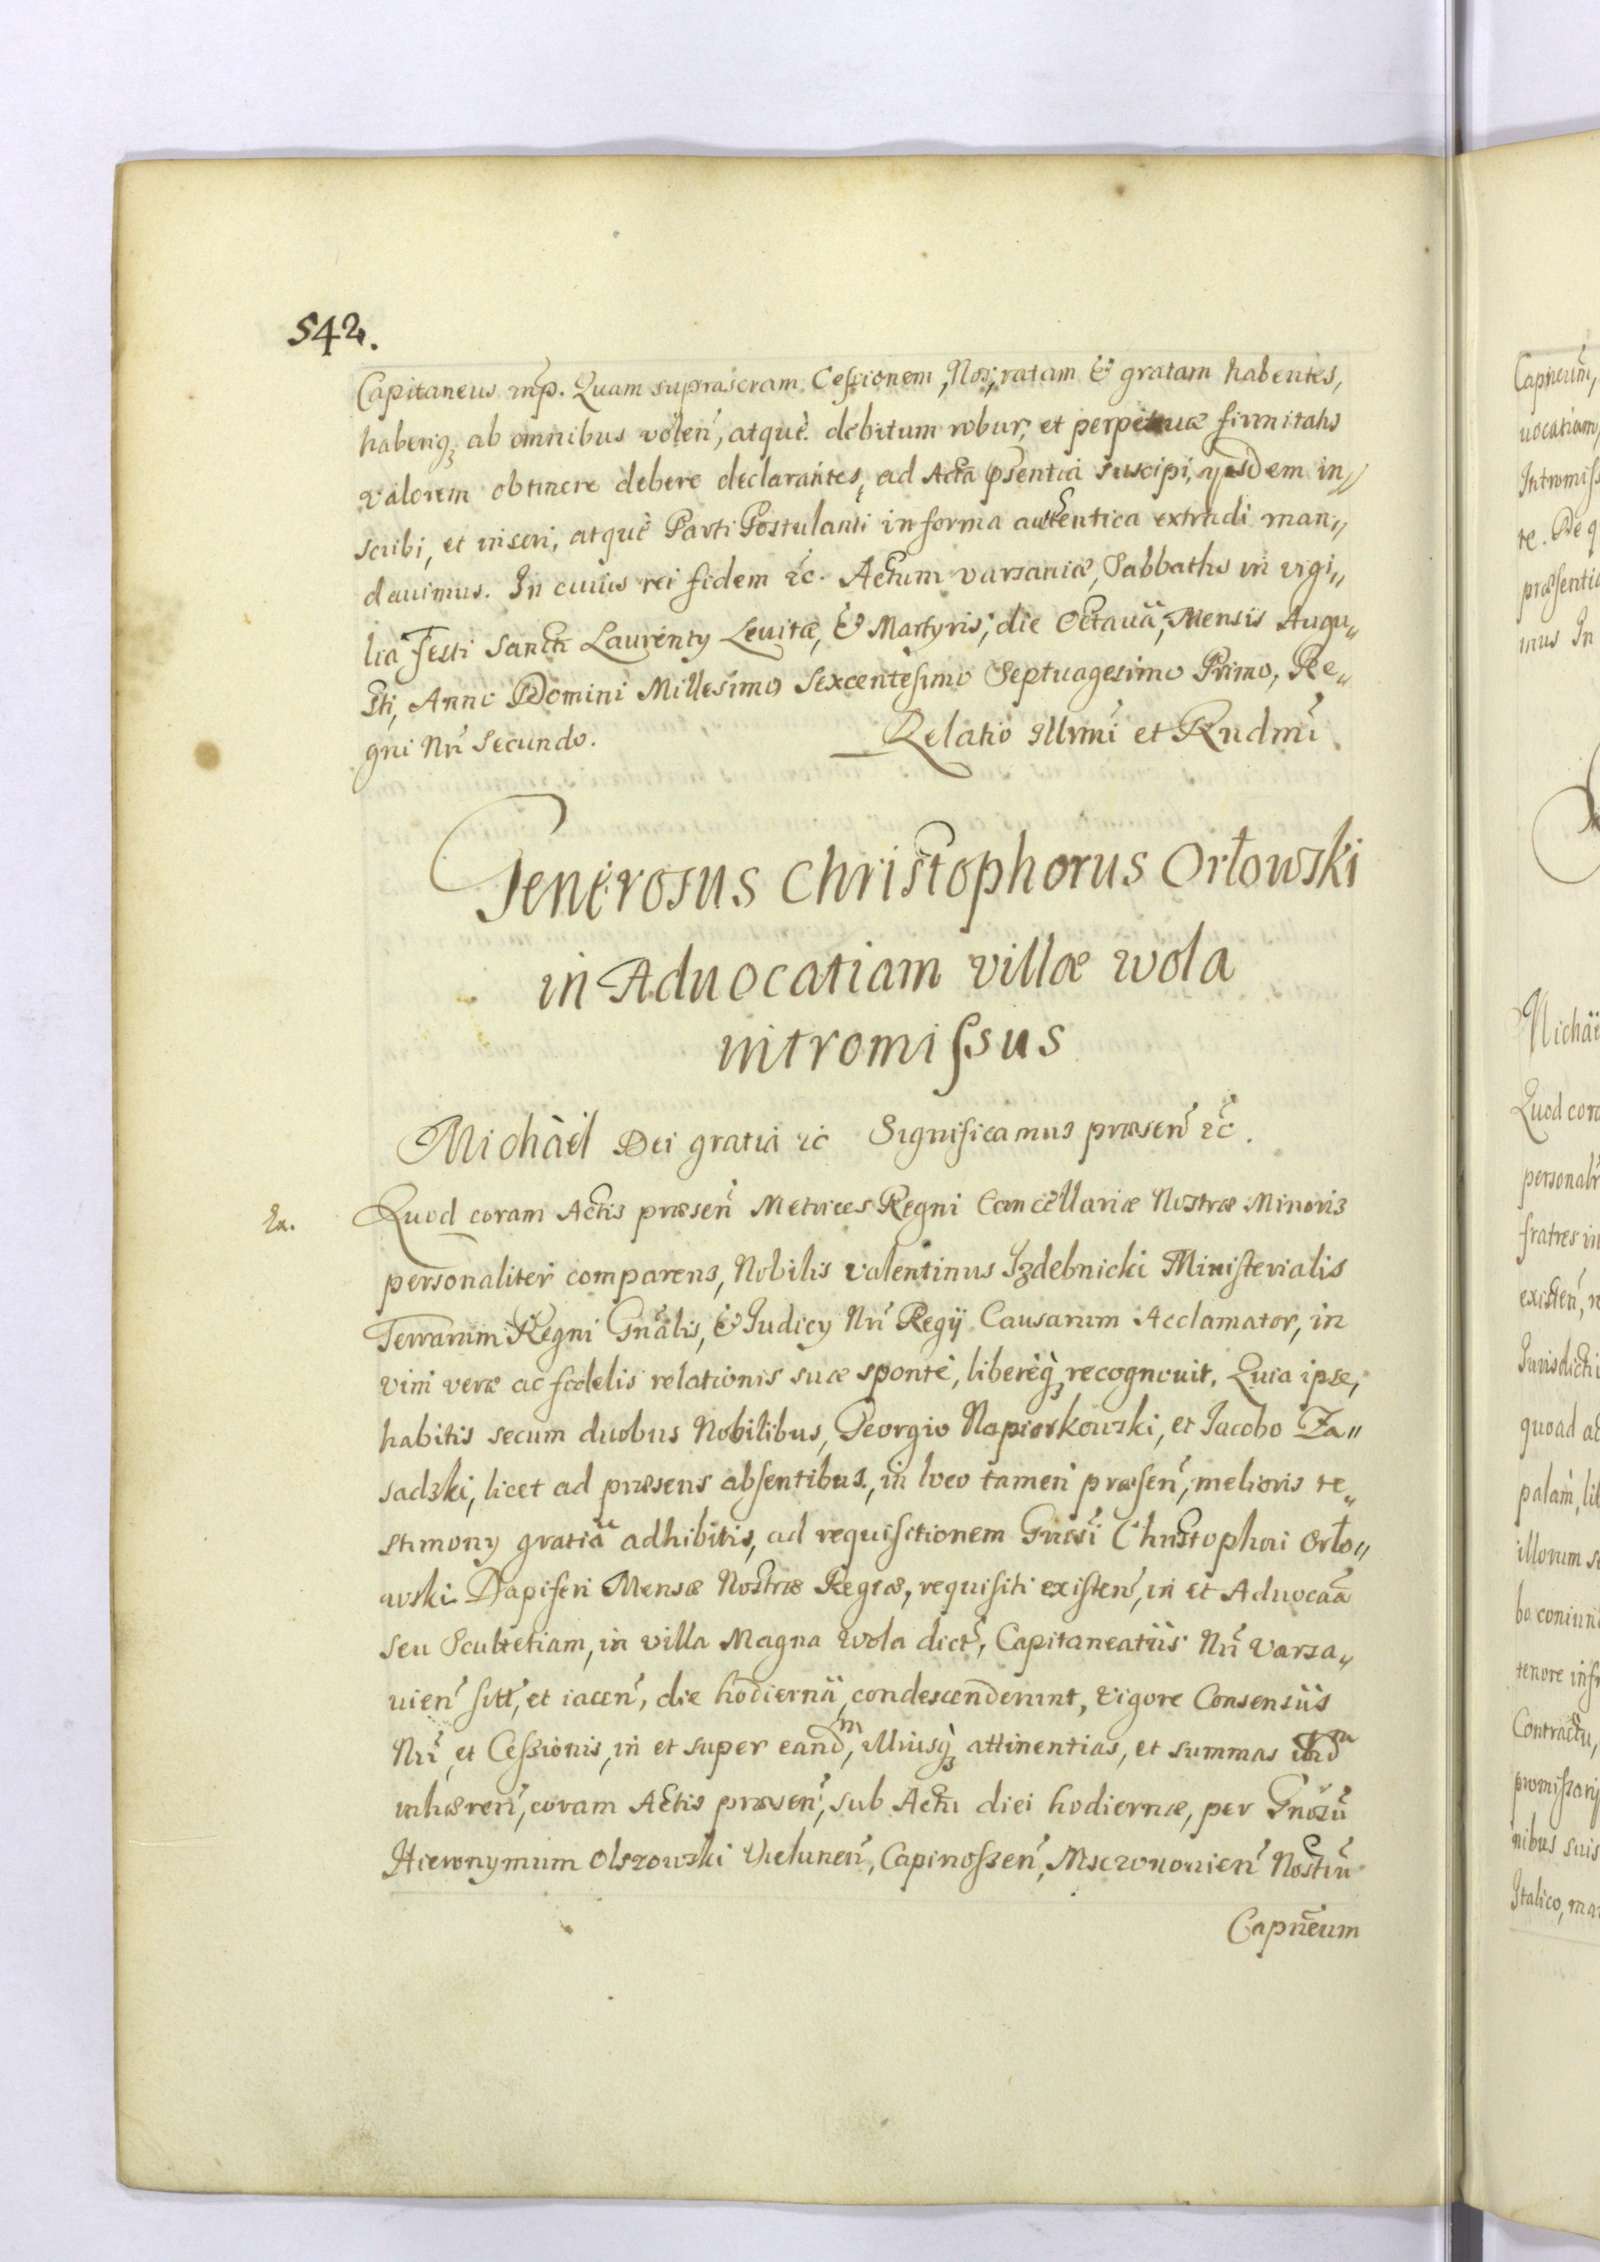 542.
Capitaneus mp. Quam suprascram Cessionem, Nos, ratam & gratam habentes,
haberiq3 ab omnibus volen̄, atquè debitum robur, et perpetuæ firmitatis
valorem obtinere debere declarantes, ad Acta p̄sentia suscipi, ijsdem in„
scribi, et inseri, atquè Parti Postulanti in forma autentica extradi man„
davimus. In cuius rei fidem &c. Actum varsaviæ, Sabbatho in vigi„
lia Festi Sancti Laurenty Levitæ, & Martyris, die Octauâ, Mensis Augu„
sti, Anno Domini Millesimo Sexcentesimo Septuagesimo Primo, Re„
gni Nrī Secundo. Relatio Illmī et Rndmī
Generosus Christophorus Orłowski
in Aduocatiam villæ wola
intromissus
Michàèl Dei gratia &c Significamus præsen̄ &c̄.
Ex.
Quod coram Actis præsen̄ Metrices Regni Cancellariæ Nostræ Minoris
personaliter comparens, Nobilis valentinus Izdebnicki Ministerialis
Terrarum Regni Gnālis, & Iudicy Nrī Regij Causarum Acclamator, in
vim veræ ac fidelis relationis suæ spontè, liberèq3 recognouit. Quia ipse,
habitis secum duobus Nobilibus, Georgio Napiorkowski, et Iacobo Za„
sadzki, licet ad præsens absentibus, in loco tamen præsen̄, melioris te„
stimony gratiâ adhibitis, ad requisitionem Gnosī Christophori Orło„
wski Dapiferi Mensæ Nostræ Regiæ, requisiti existen̄, in et Aduocaā
seu Scultetiam, in villa Magna Wola dict̄, Capitaneatûs Nrī Varsa„
uien̄ sitt̄, et iacen̄, die hodiernâ, condescenderunt, vigore Consensûs
Nrī, et Cessionis, in et super eandm, illiusq3 attinentias, et summas
inhæren̄, coram Actis præsen̄, sub Actu diei hodiernæ, per Gnosū
Hieronymum Olszowski Vielunen̄, Capinossen̄, Mszczonouien̄ Nostrū
Capn̄eum